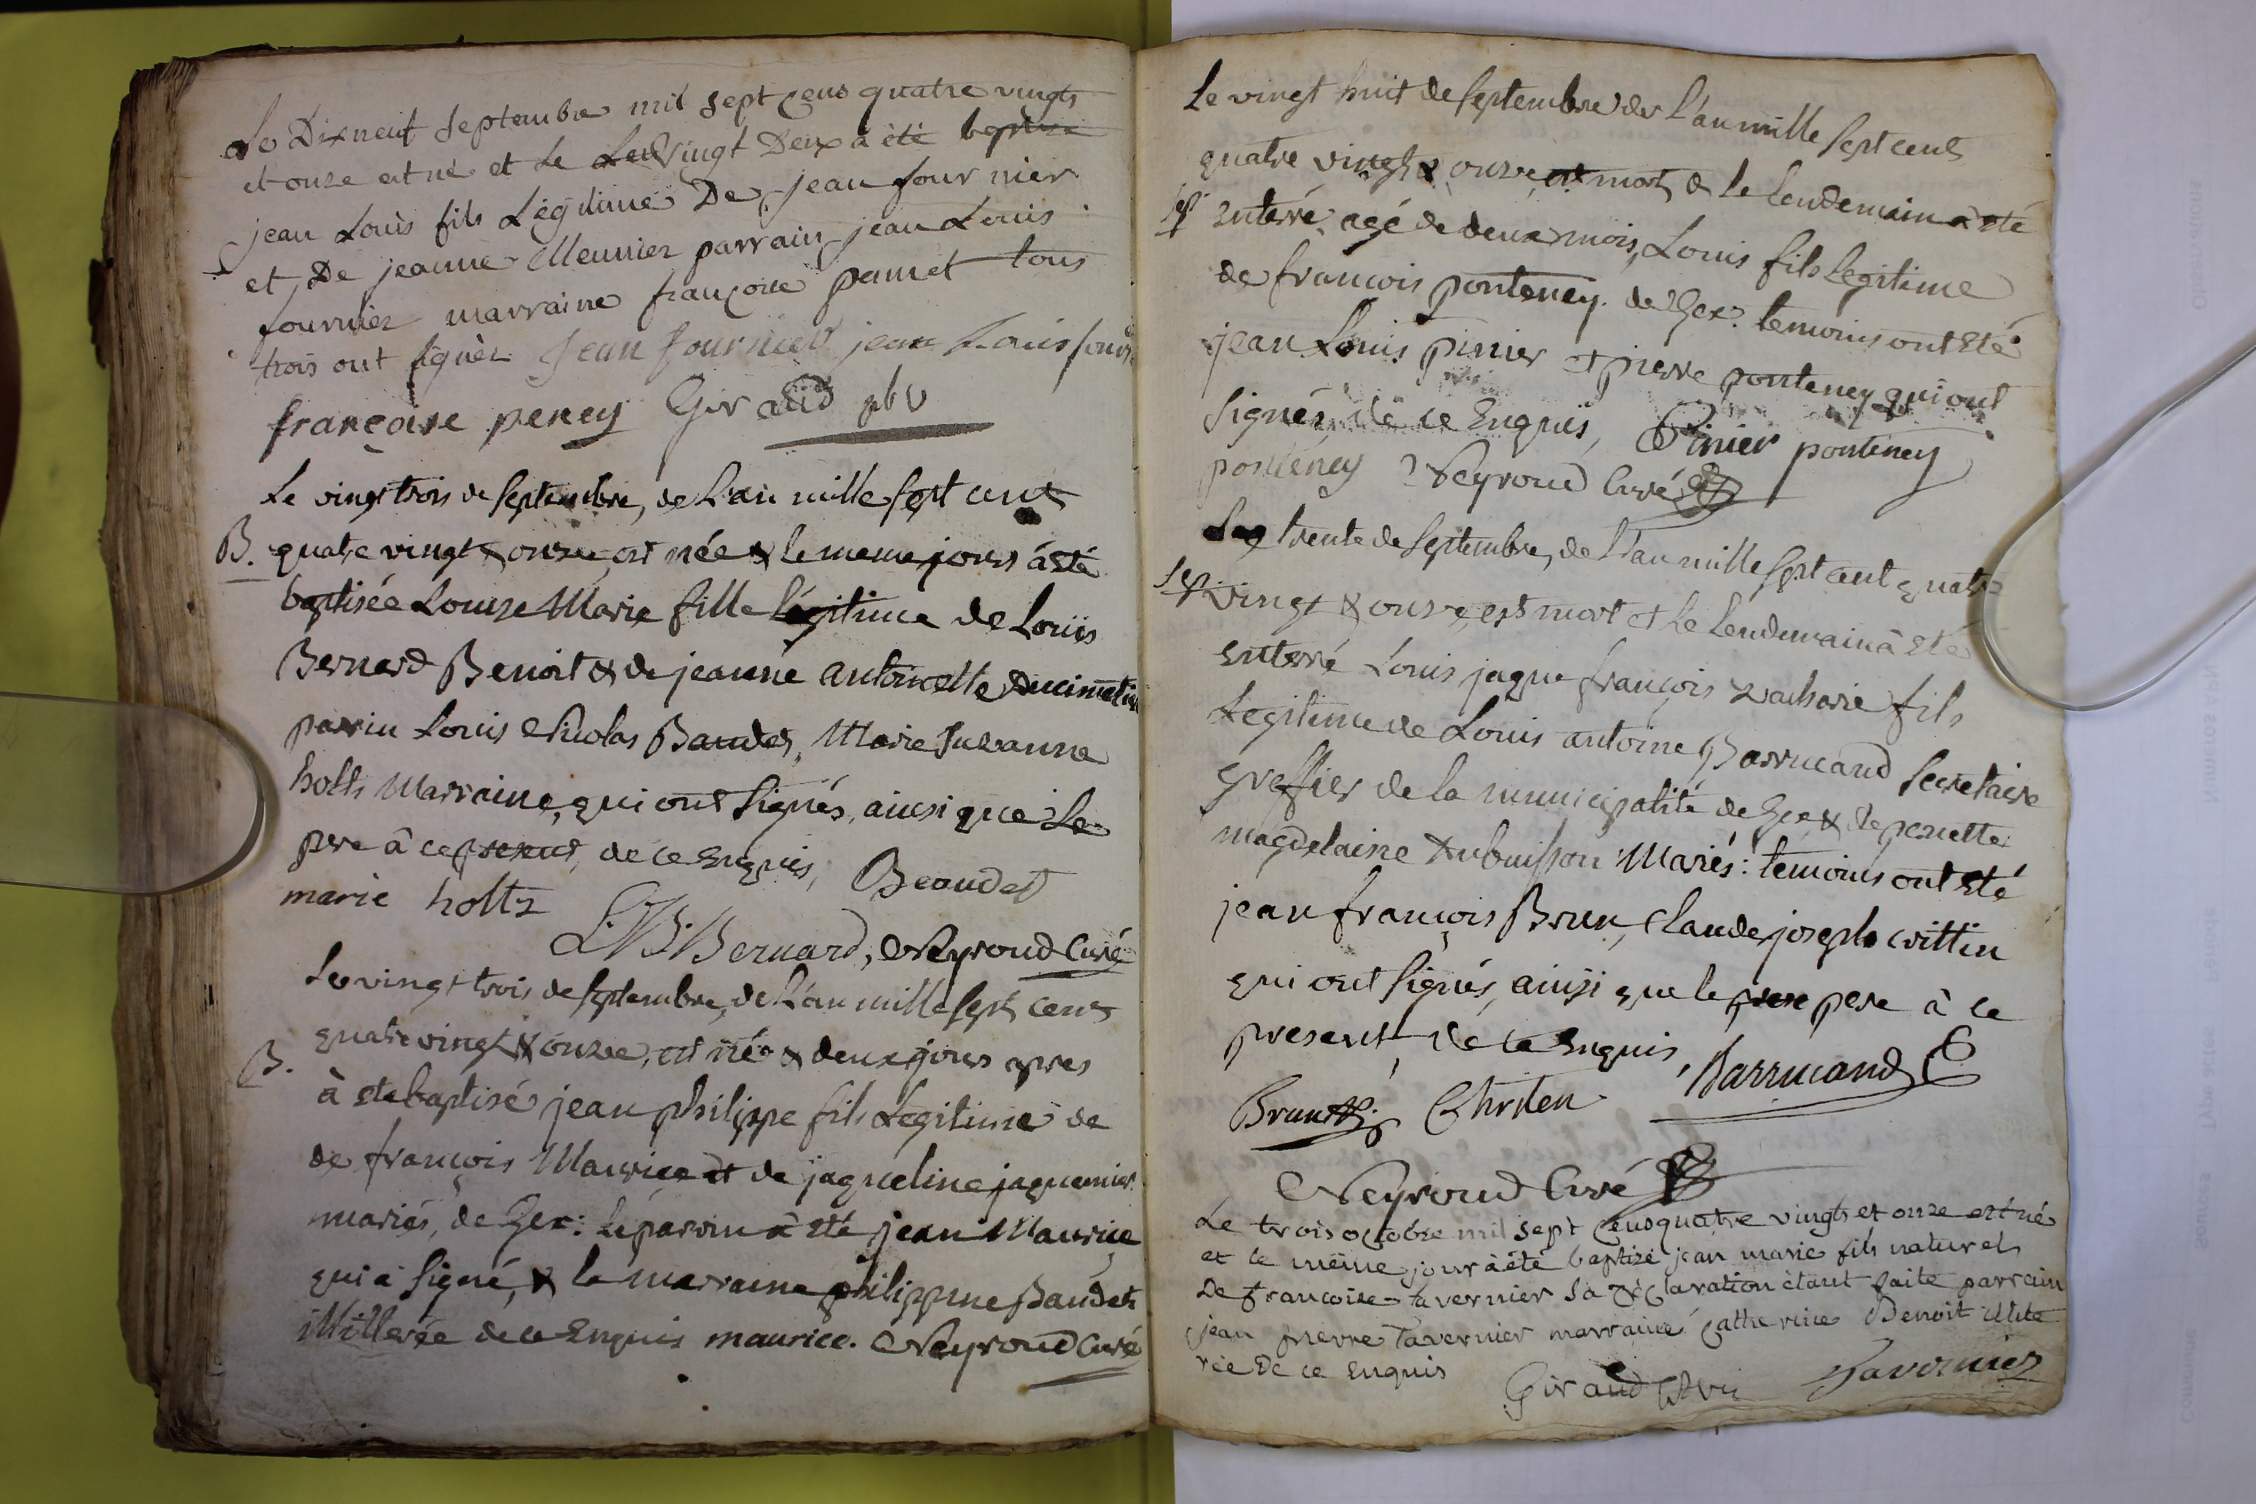 Le Dixneuf Septembre mil sept cens quatre vingts
et onze est né et le vingt Deux a été baptisé
jean Louis fils Légitime De jean fournier
et De jeanne Meunier parrain jean Louis
fournier marraine françoise pamet tous
trois ont signèz jean fournier jean Louis
françoise peney Giraud
Le vingt trois de septembre, de L'an mille sept cent
B. quatre vingt & onze, est née & le meme jour à été
baptisée Louise Marie fille légitime de Louis
Bernard Benoit & de jeanne antoinette
parrin Louis Nicolas Baudet, Marie Suzanne
holts Marraine, qui ont signés, ainsi que le
pere à ce present, de ce enquis, Beaudet
marie holtz L:B:Bernard, Neyroud Curé
Le vingt trois de septembre, de L'an mille sept cent
quatre vingt & onze, est né & deux jours apres
B.
à ete baptisé jean philippe fils Legitime de
de françois Maurice et de jaqueline jaquemier
mariés, de Gex: le parrin à été jean Maurice
qui a signé, & la marraine philippine Baudet
illiterée de ce Enquis maurice. Neyroud Curé
Le vingt huit de septembre de L'an mille sept cent
quatre vingt & onze est mort & le lendemain à été
sep enterré, agé de deux mois, Louis fils legitime
de francois ponteney. de Gex. temoins ont été
jean Louis pinier et pierre ponteney qui ont
signés, de ce Enquis, Pinier ponteney
ponteney Neyroud Curé
Le trente de septembre, de L'an mille sept cent quatre
sep vingt & onze, est mort et le lendemain à été
enterré Louis jaque françois zacharie fils
Legitime de Louis antoine Barrucand secretaire
greffier de la municipalité de Gex & de pernette
magdelaine Dubuisson Mariés: temoins ont été
jean françois Brun, Claude joseph wittin
qui ont signés, ainsi que le pere à ce
present, de ce enquis, Barrucand
Brun
Neyroud Curé
Le trois octobre mil sept cens quatre vingts et onze est né
et le même jour à été baptizé jean marie fils naturel
De françoise tavernier sa déclaration étant faite parrain
jean pierre Tavernier marraine catherine Benoit illite
rée De ce enquis
Giraud Tavernier